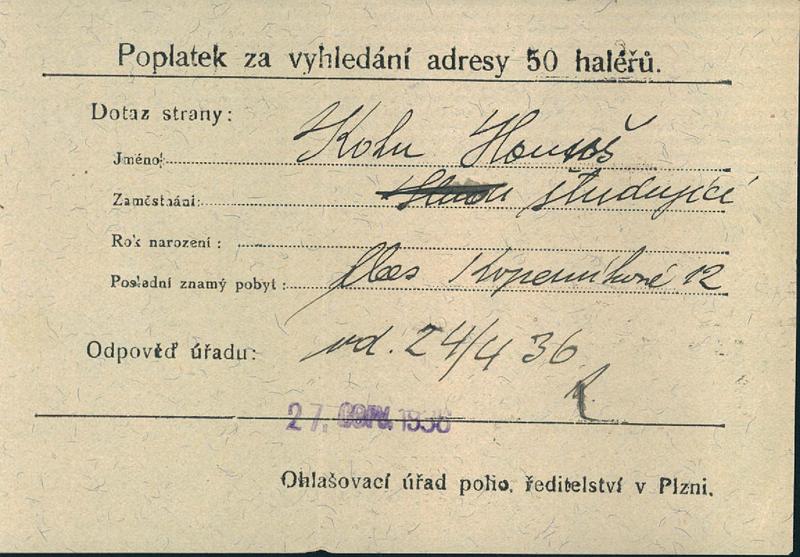 Poplatek za vyhledání adresy 50 haléřů.
Dotaz strany:
Jméno: Kohn Hanuš
Zaměstnání: studující
Rok narození:
Poslední znamý pobyt: Koperníkově 12
Odpověď úřadu: od. 24/4 36
27. 1936
Ohlašovací úřad polic. ředitelství v Plzni.